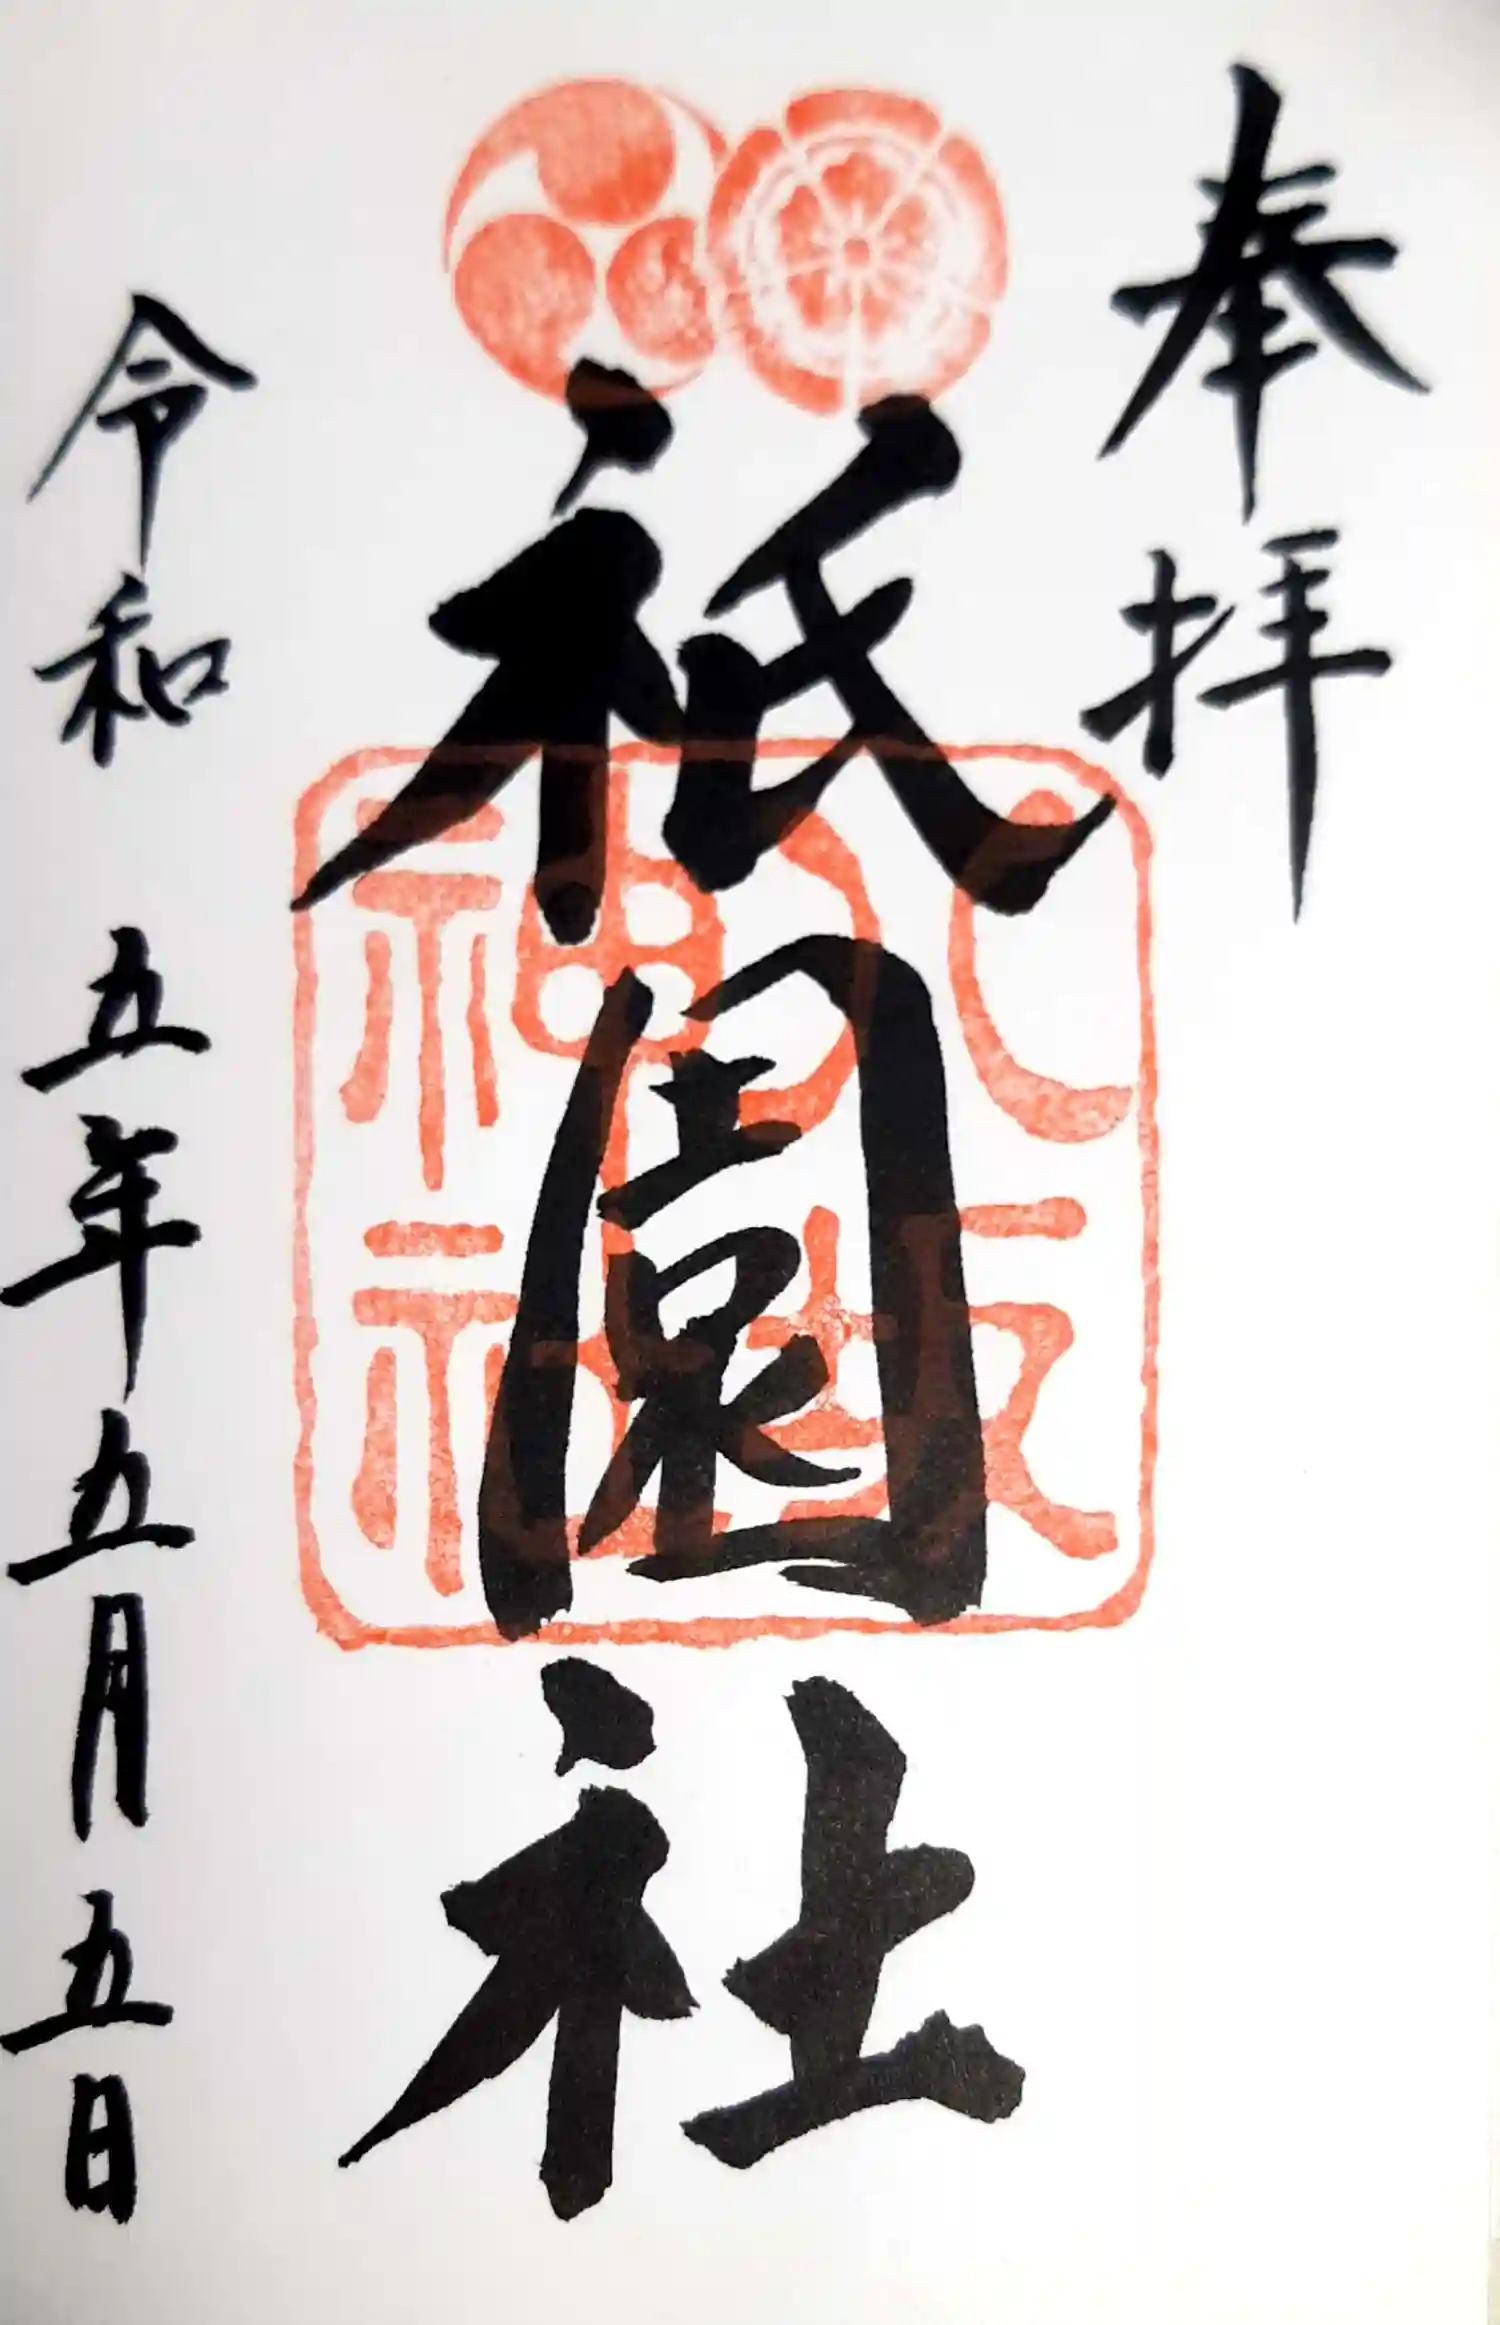 奉拝
祇園社
八坂神社
令和五年五月五日